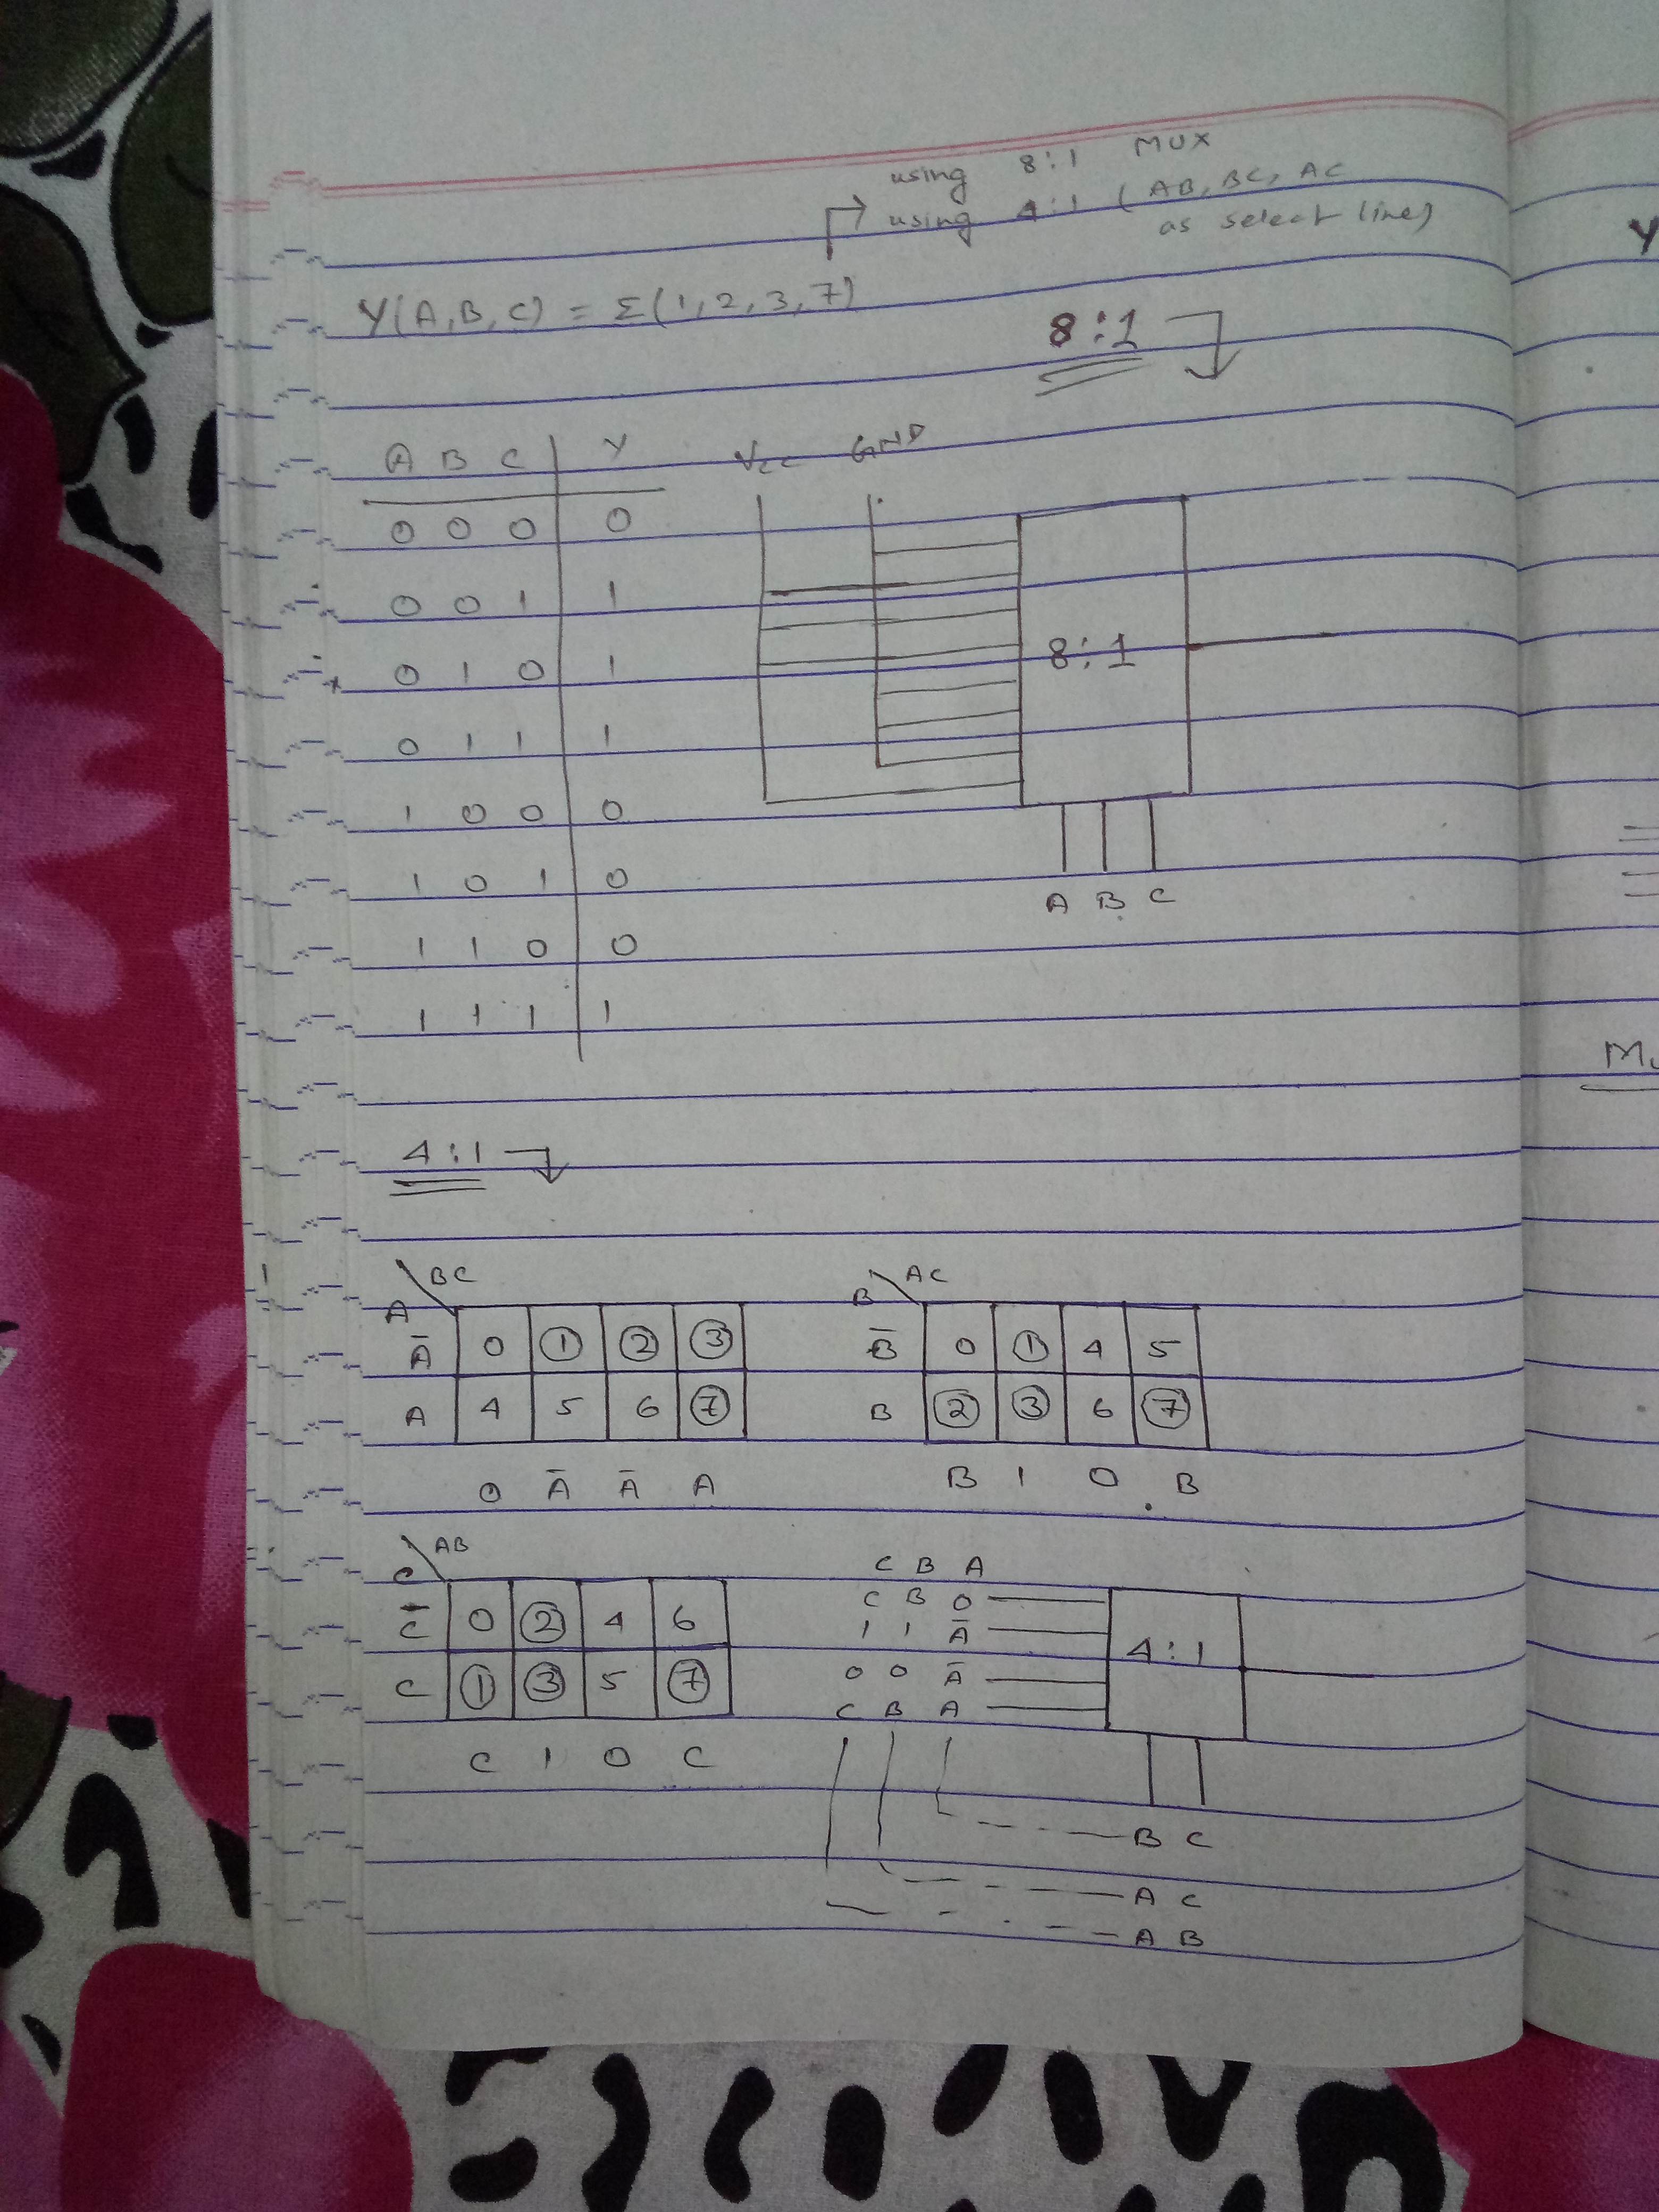 using 8:1 MUX
using 4:1 (AB, BC, AC
as select line)
Y(A,B,C) = Σ(1,2,3,7)
8:1
A B C Y
Vcc GND
0 0 0 0
0 0 1 1
0 1 0 1
0 1 1 1
1 0 0 0
1 0 1 0
1 1 0 0
1 1 1 1
8:1
A B C
4:1
BC
A
Ā 0 1 2 3
A 4 5 6 7
0 Ā Ā A
AC
B
B̄ 0 1 4 5
B 2 3 6 7
B 1 0 B
AB
C
C̄ 0 2 4 6
C 1 3 5 7
C 1 0 C
C B A
C B 0
1 1 Ā
0 0 Ā
C B A
4:1
B C
A C
A B
Y